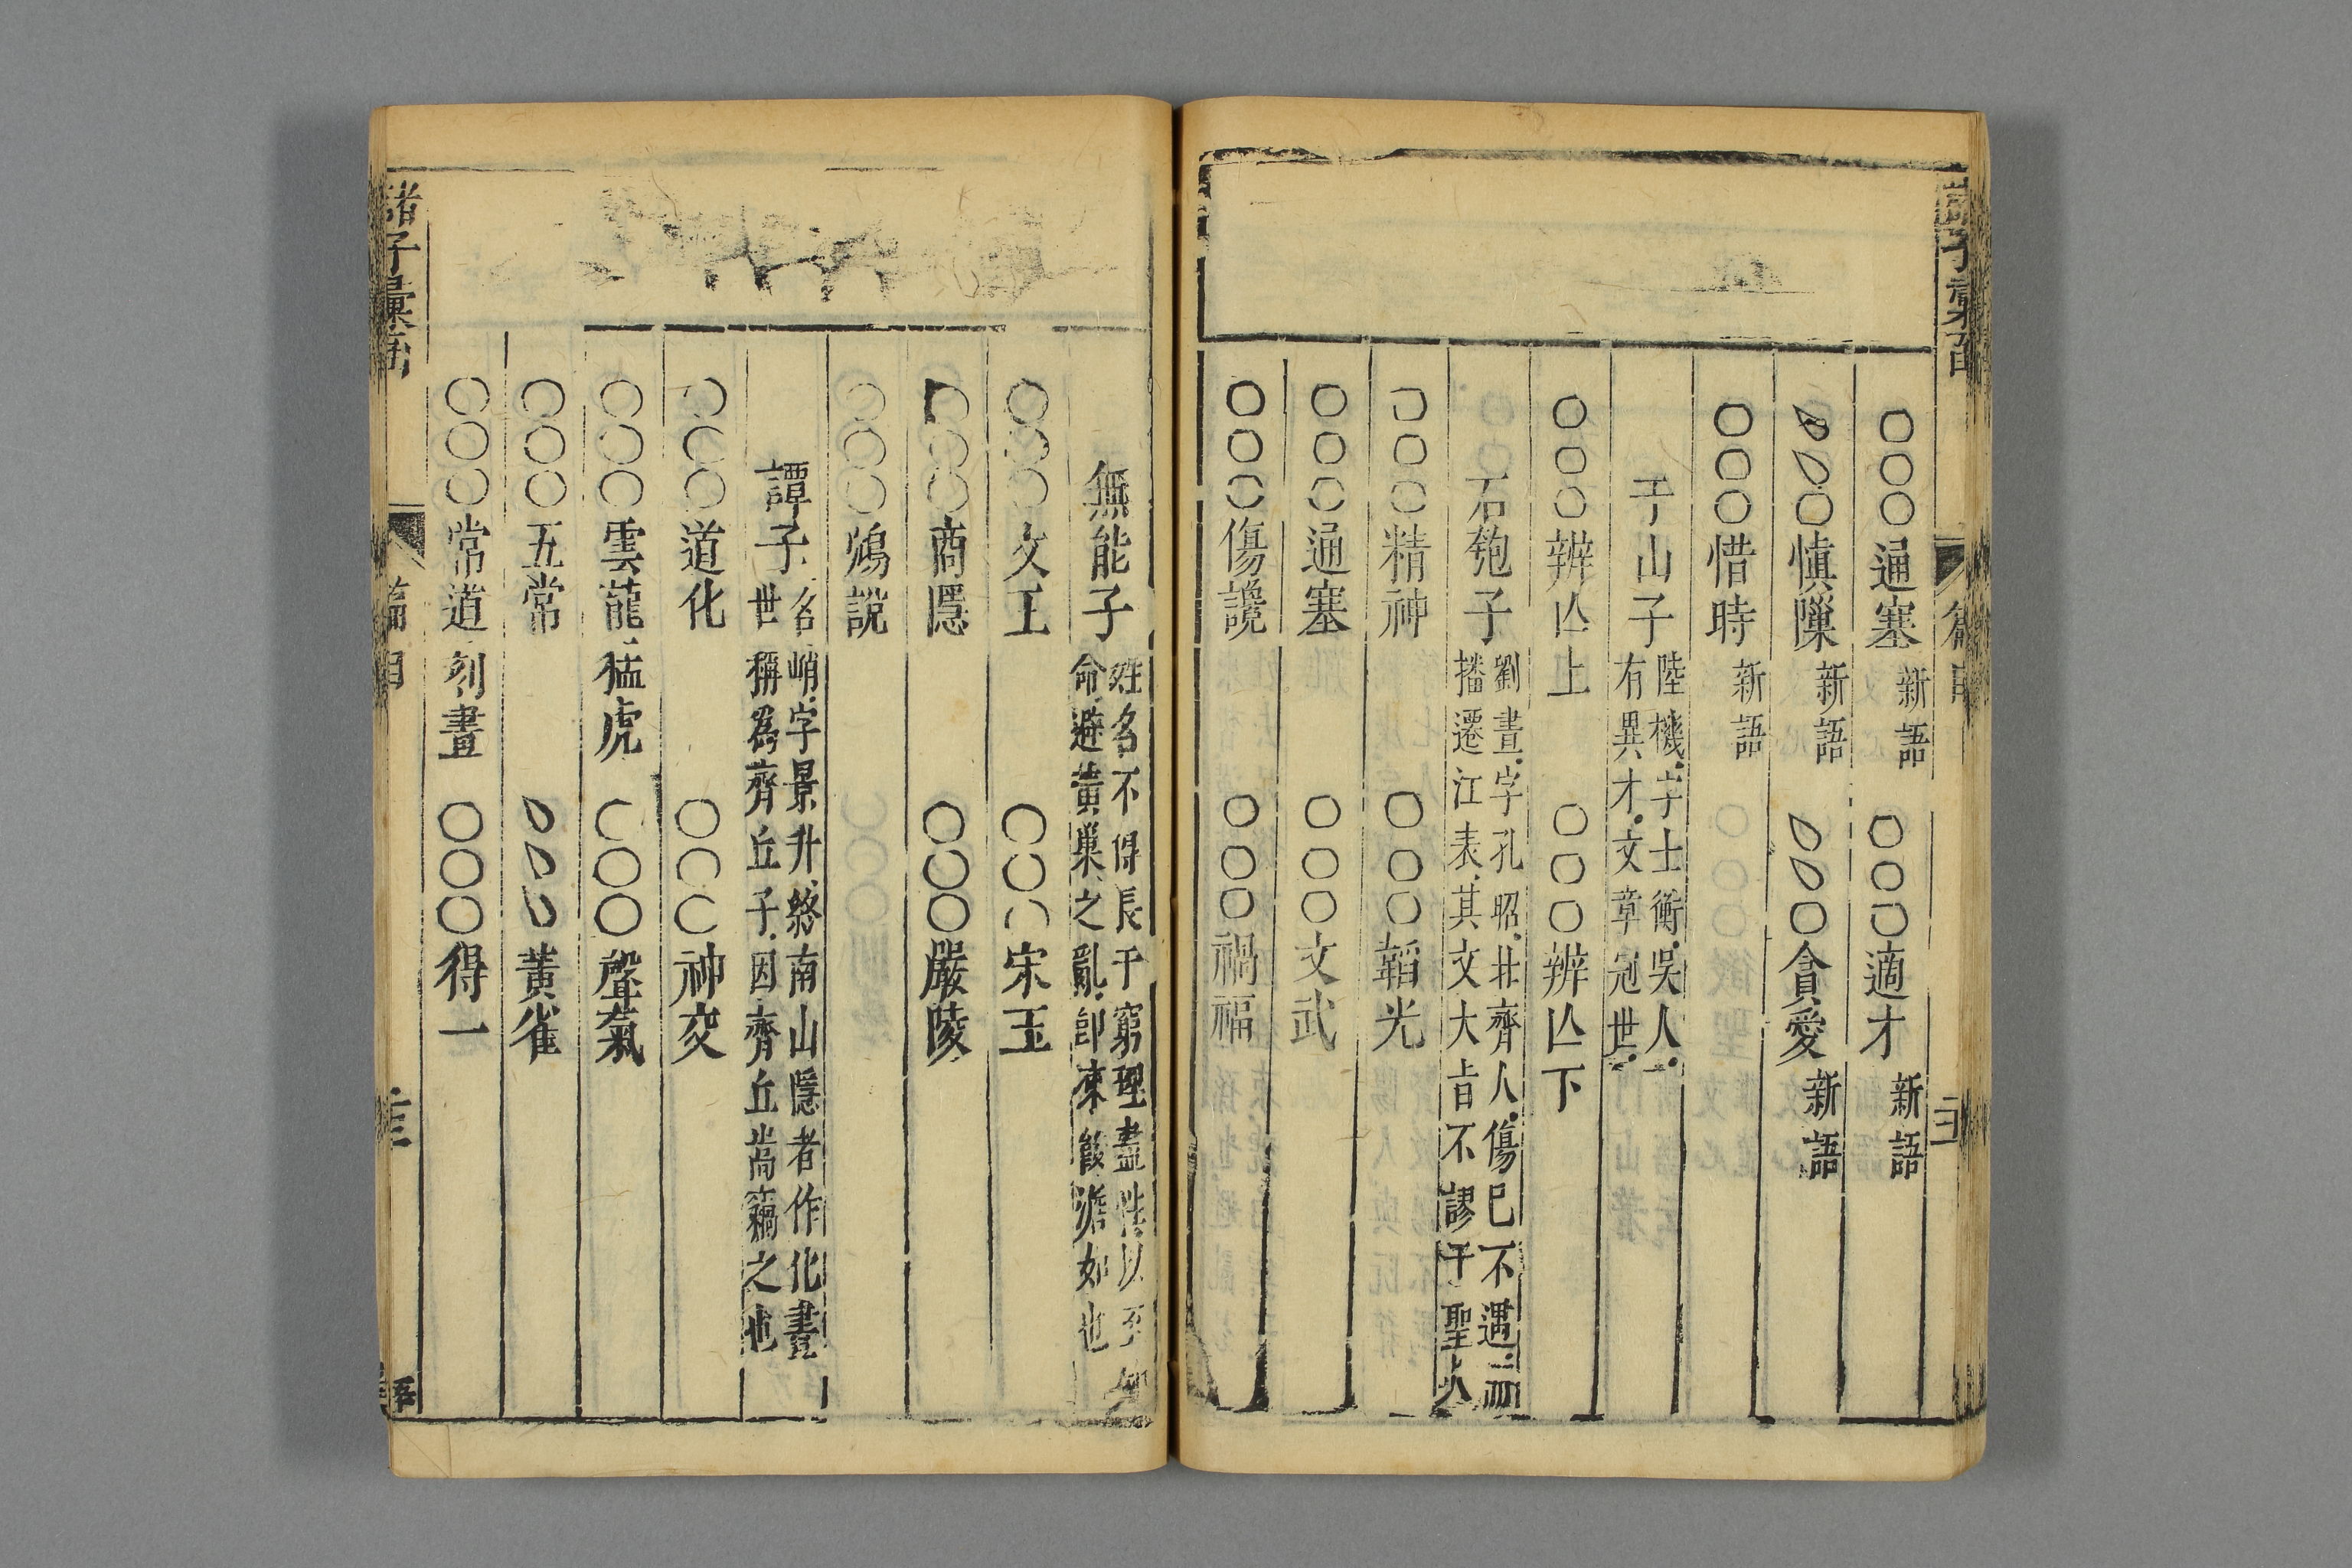 ○○○通塞 新語 ○○○適才 新語
○慎隟 新語 ○貪愛 新語
○○○惜時 新語
于山子 陸機字士衡吳人
有異才文章冠世
○○○辨亾上 ○○○辨亾下
石匏子 劉晝字孔昭北齊人傷巳不遇
播遷江表其文大旨不謬于聖人
○○○精神 ○○○韜光
○○○通塞 ○○○文武
○○○傷讒 ○○○禍福
無能子 姓名不得長于窮理盡性以至
命避黃巢之亂卽凍餒澹如也
○○○文王 ○○○宋玉
○○○商隱 ○○○嚴陵
○○○鴆說
譚子 名峭字景升終南山隱者作化書
世稱爲齊丘子因齊丘甞竊之也
○○○道化 ○○○神交
○○○雲龍 猛虎 ○○○聲氣
○○○五常 黃雀
○○○常道 刻畫 ○○○得一
諸子彙函 篇目